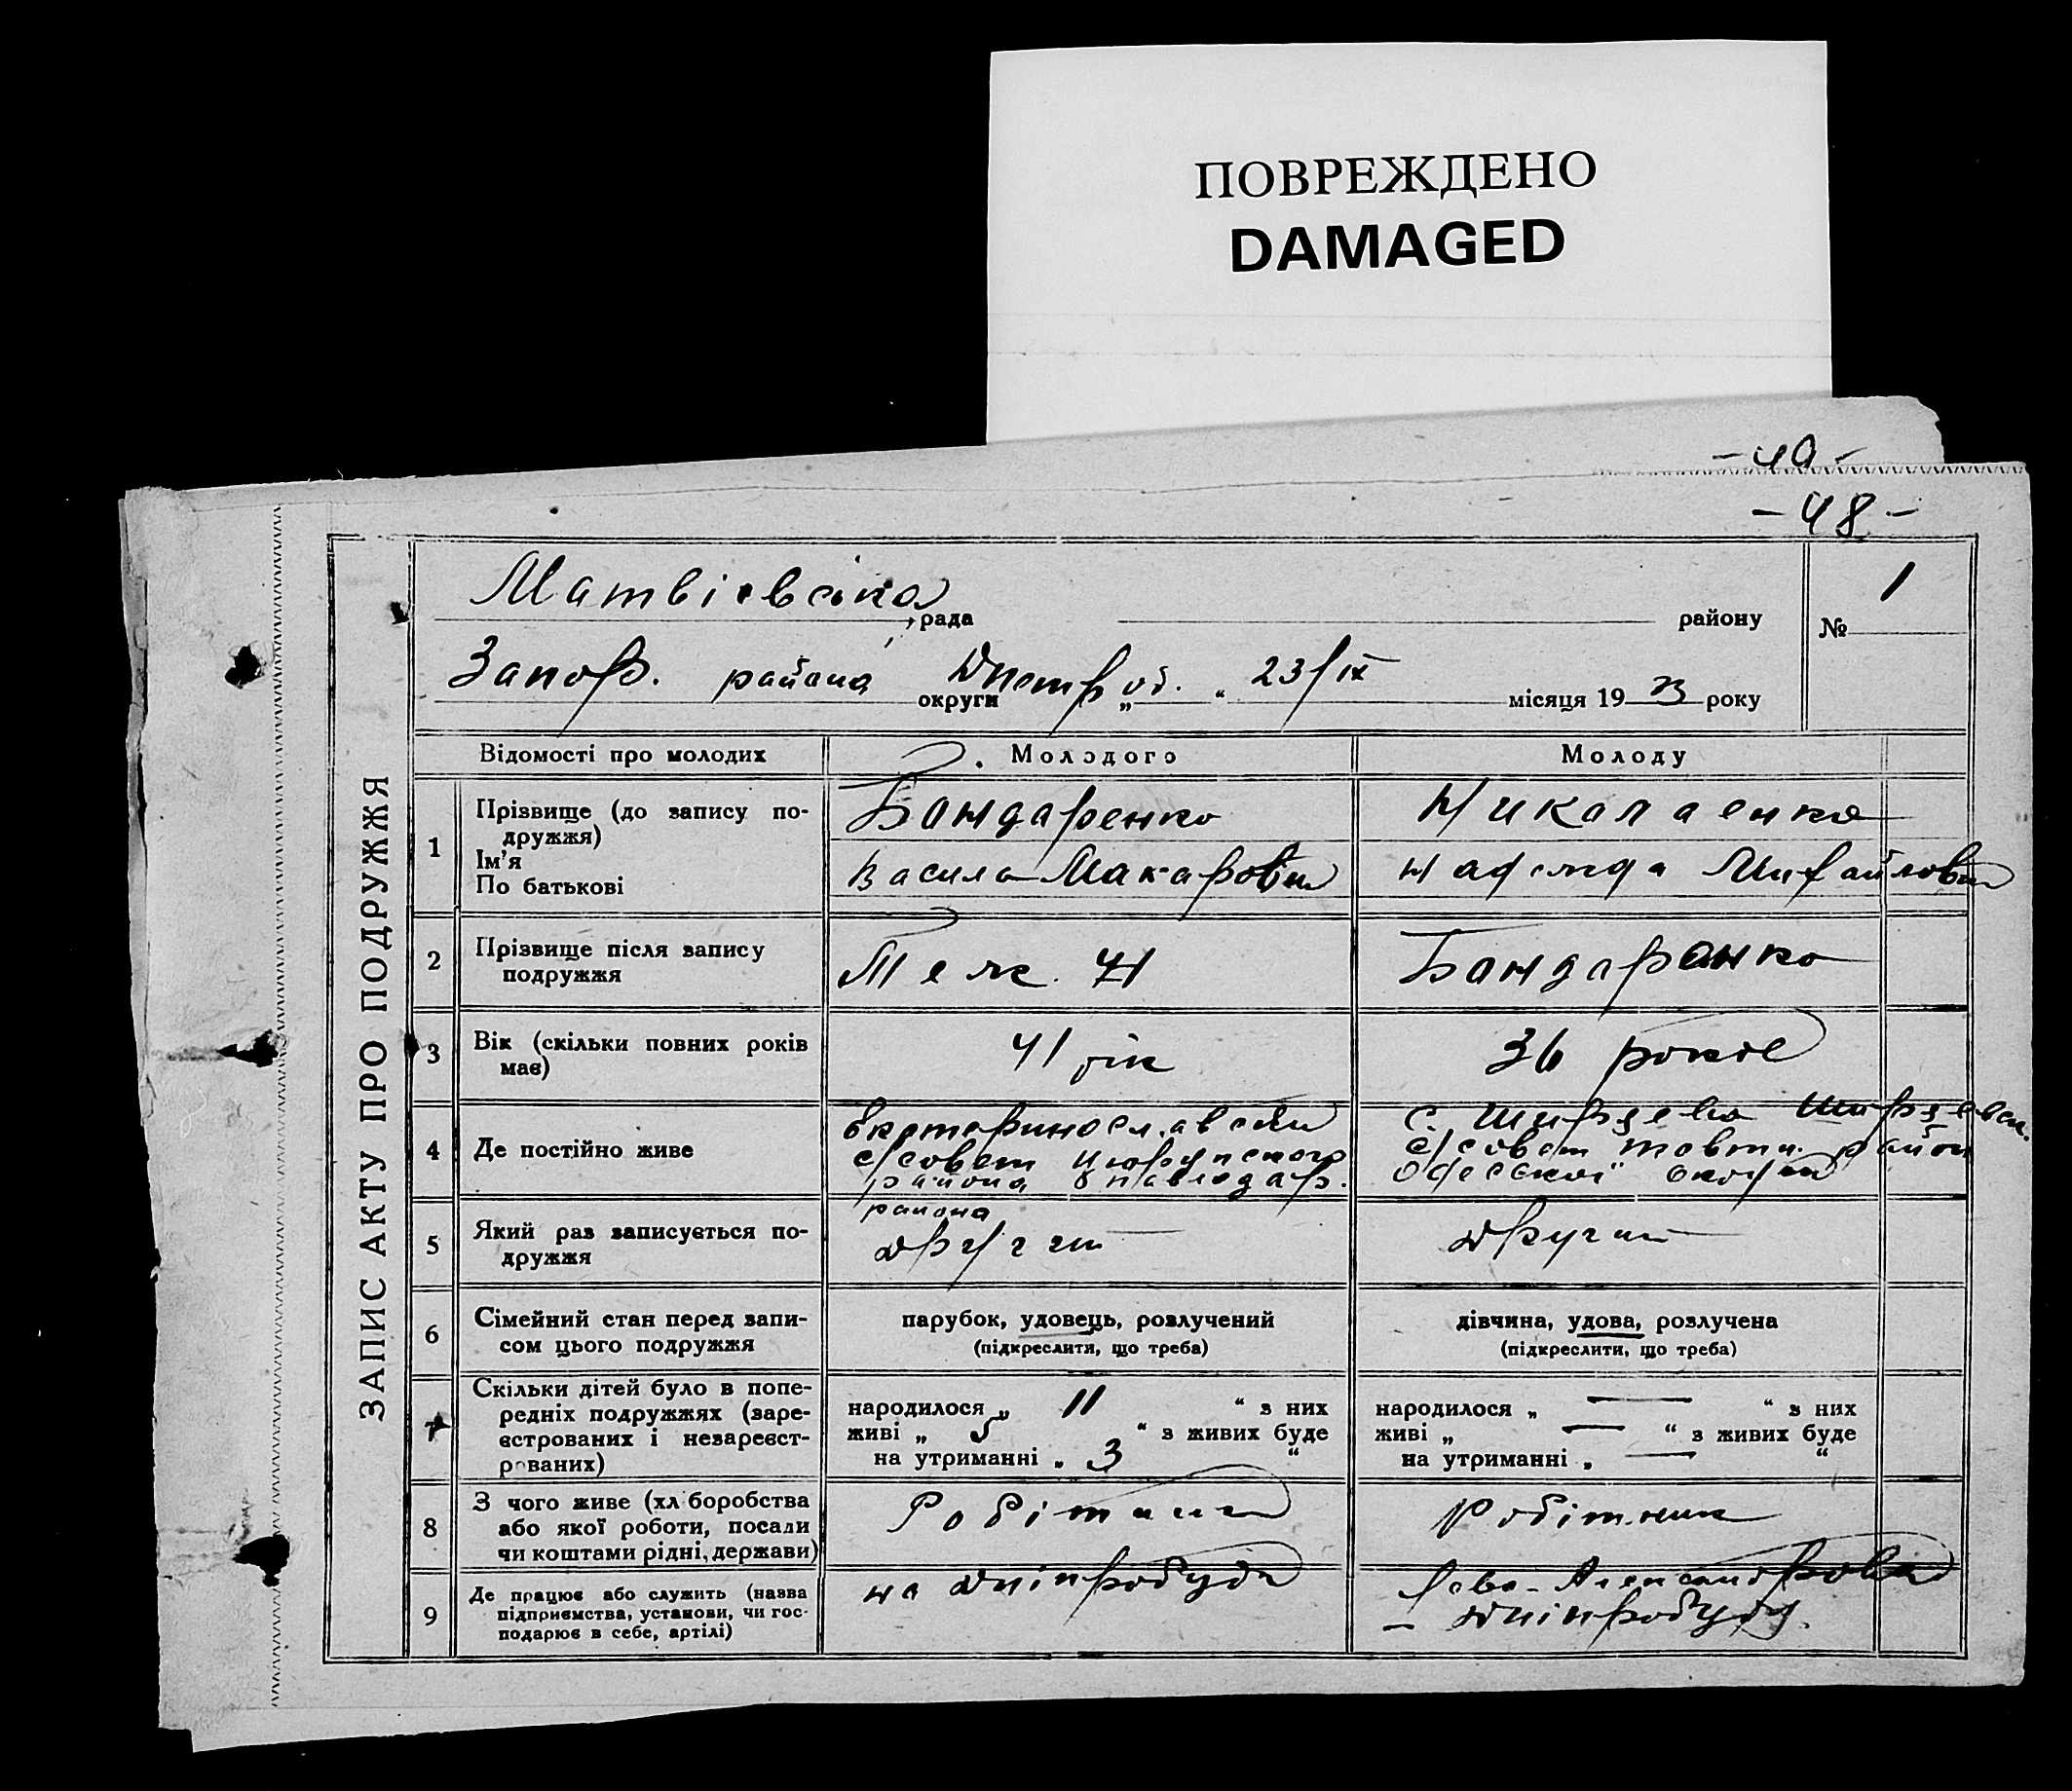 ПОВРЕЖДЕНО
DAMAGED
-49-
-48-
ЗАПИС АКТУ ПРО ПОДРУЖЖЯ
Матвієвська рада району № 1
Запор. района округи Днепр об. „ “ 23/IX місяця 1933 року
Відомості про молодих Молодого Молоду
1 Прізвище (до запису подружжя) Бондаренко Николаенко
Ім'я
По батькові Василь Макарович Надежда Михайловна
2 Прізвище після запису Теж Бондаренко
подружжя
3 Вік (скільки повних років 41 рік 36 років
має)
4 Де постійно живе Екатеринославский с. Ширяево
с/совет Цюрупинского с/совет район
района Павлодар. Одеської округи
района
5 Який раз записується по- другий другий
дружжя
6 Сімейний стан перед запи- парубок, удовець, розлучений дівчина, удова, розлучена
сом цього подружжя (підкреслити, що треба) (підкреслити, що треба)
7 Скільки дітей було в попе-
редніх подружжях (заре- народилося „ 11 “ з них народилося „ — “ з них
єстрованих і незареєст- живі „ 5 “ з живих буде живі „ — “ з живих буде
рованих) на утриманні „ 3 “ на утриманні „ — “
8 З чого живе (хліборобства Робітник Робітник
або якої роботи, посади
чи коштами рідні, держави)
9 Де працює або служить (назва на Дніпробуді
підприємства, установи, чи гос- — Дніпробуду.
подарює в себе, артілі)